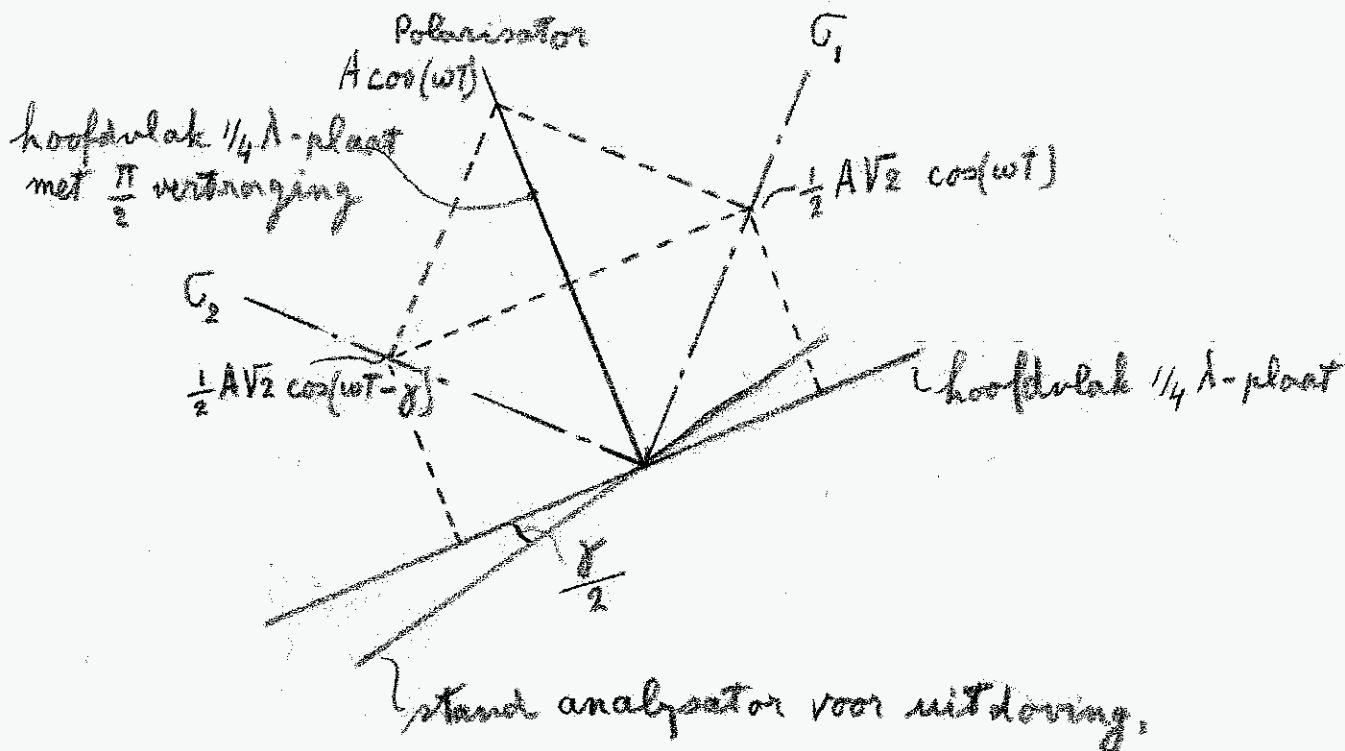 Polarisator
A cos(ωT)
σ₁
hoofdvlak 1/4 λ-plaat
met π/2 vertraging
1/2 A√2 cos(ωT)
σ₂
1/2 A√2 cos(ωT-γ)
hoofdvlak 1/4 λ-plaat
γ/2
stand analysator voor uitdoving.